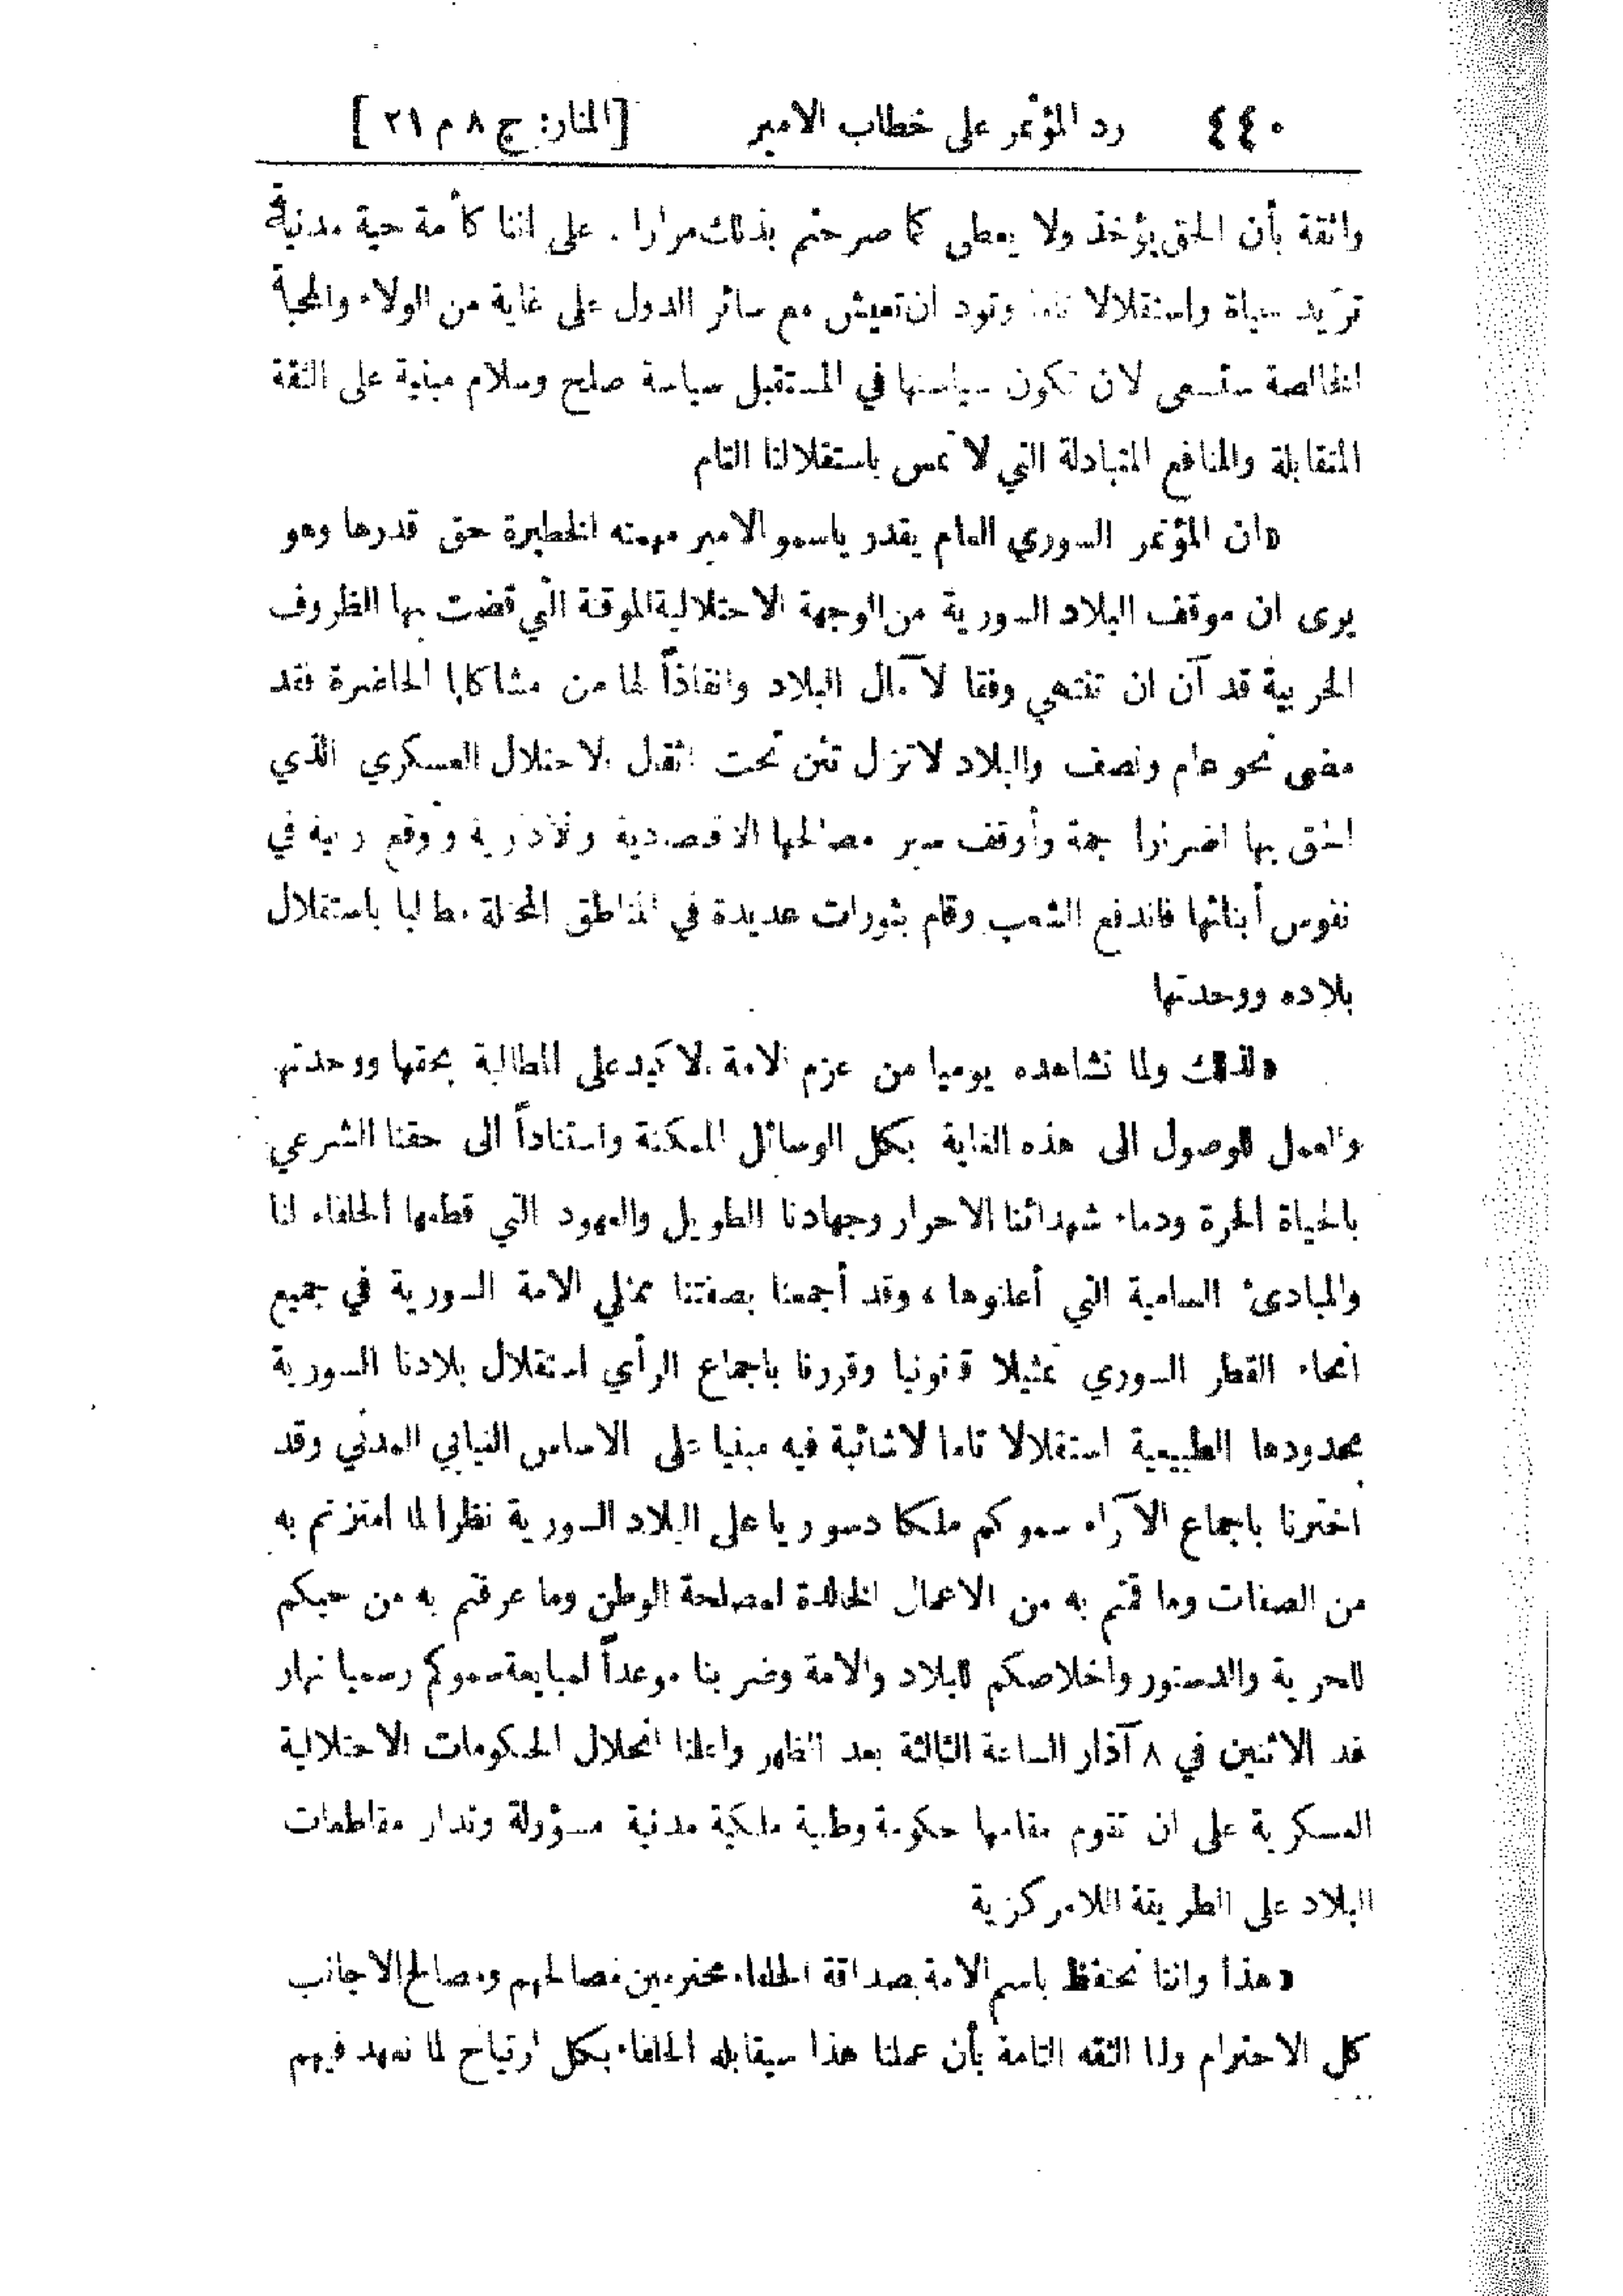 ٤٤٠ رد المؤتمر على خطاب الامير [المنار: ج ٨ م ٢١]
واثقة بأن الحق يؤخذ ولا يعطى كما صرحتم بذلك مرارا . على اننا كأمة حية مدنية
تريد حياة واستقلالا تاما وتود ان تعيش مع سائر الدول على غاية من الولاء والمحبة
الخالصة سنسعى لان تكون سياستها في المستقبل سياسة صلح وسلام مبنية على الثقة
المتقابلة والمنافع المتبادلة التي لا تمس باستقلالنا التام
«ان المؤتمر السوري العام يقدر ياسمو الامير مهمته الخطيرة حق قدرها وهو
يرى ان موقف البلاد السورية من الوجهة الاحتلالية الموقتة التي قضت بها الظروف
الحربية قد آن ان تنتهي وفقا لآمال البلاد وانقاذاً لها من مشاكلها الحاضرة فقد
مضى نحو عام ونصف والبلاد لا تزال تئن تحت اثقال الاحتلال العسكري الذي
الحق بها اضرارا جمة وأوقف سير مصالحها الاقتصادية والادارية واوقع ريبة في
نفوس أبنائها فاندفع الشعب وقام بثورات عديدة في المناطق المحتلة مطالبا باستقلال
بلاده ووحدتها
«لذلك ولما نشاهده يوميا من عزم الامة الاكيد على المطالبة بحقها ووحدتها
والعمل للوصول الى هذه الغاية بكل الوسائل الممكنة واستناداً الى حقنا الشرعي
بالحياة الحرة ودماء شهدائنا الاحرار وجهادنا الطويل والعهود التي قطعها الحلفاء لنا
والمبادئ السامية التي أعلنوها ، وقد أجمعنا بصفتنا ممثلي الامة السورية في جميع
انحاء القطر السوري تمثيلا قانونيا وقررنا باجماع الرأي استقلال بلادنا السورية
بحدودها الطبيعية استقلالا تاما لا شائبة فيه مبنيا على الاساس النيابي المدني وقد
اخترنا باجماع الآراء سموكم ملكا دستوريا على البلاد السورية نظرا لما امتزتم به
من الصفات وما قمتم به من الاعمال الخالدة لمصلحة الوطن وما عرفتم به من حبكم
للحرية والدستور واخلاصكم للبلاد والامة وضربنا موعداً لمبايعة سموكم رسميا نهار
غد الاثنين في ٨ آذار الساعة الثالثة بعد الظهر واعلنا انحلال الحكومات الاحتلالية
العسكرية على ان تقوم مقامها حكومة وطنية ملكية مدنية مسؤولة وتدار مقاطعات
البلاد على الطريقة اللامركزية
«هذا واننا نحتفظ باسم الامة بصداقة الحلفاء محترمين مصالحهم ومصالح الاجانب
كل الاحترام ولنا الثقه التامة بأن عملنا هذا سيقابله الحلفاء بكل ارتياح لما نعهد فيهم